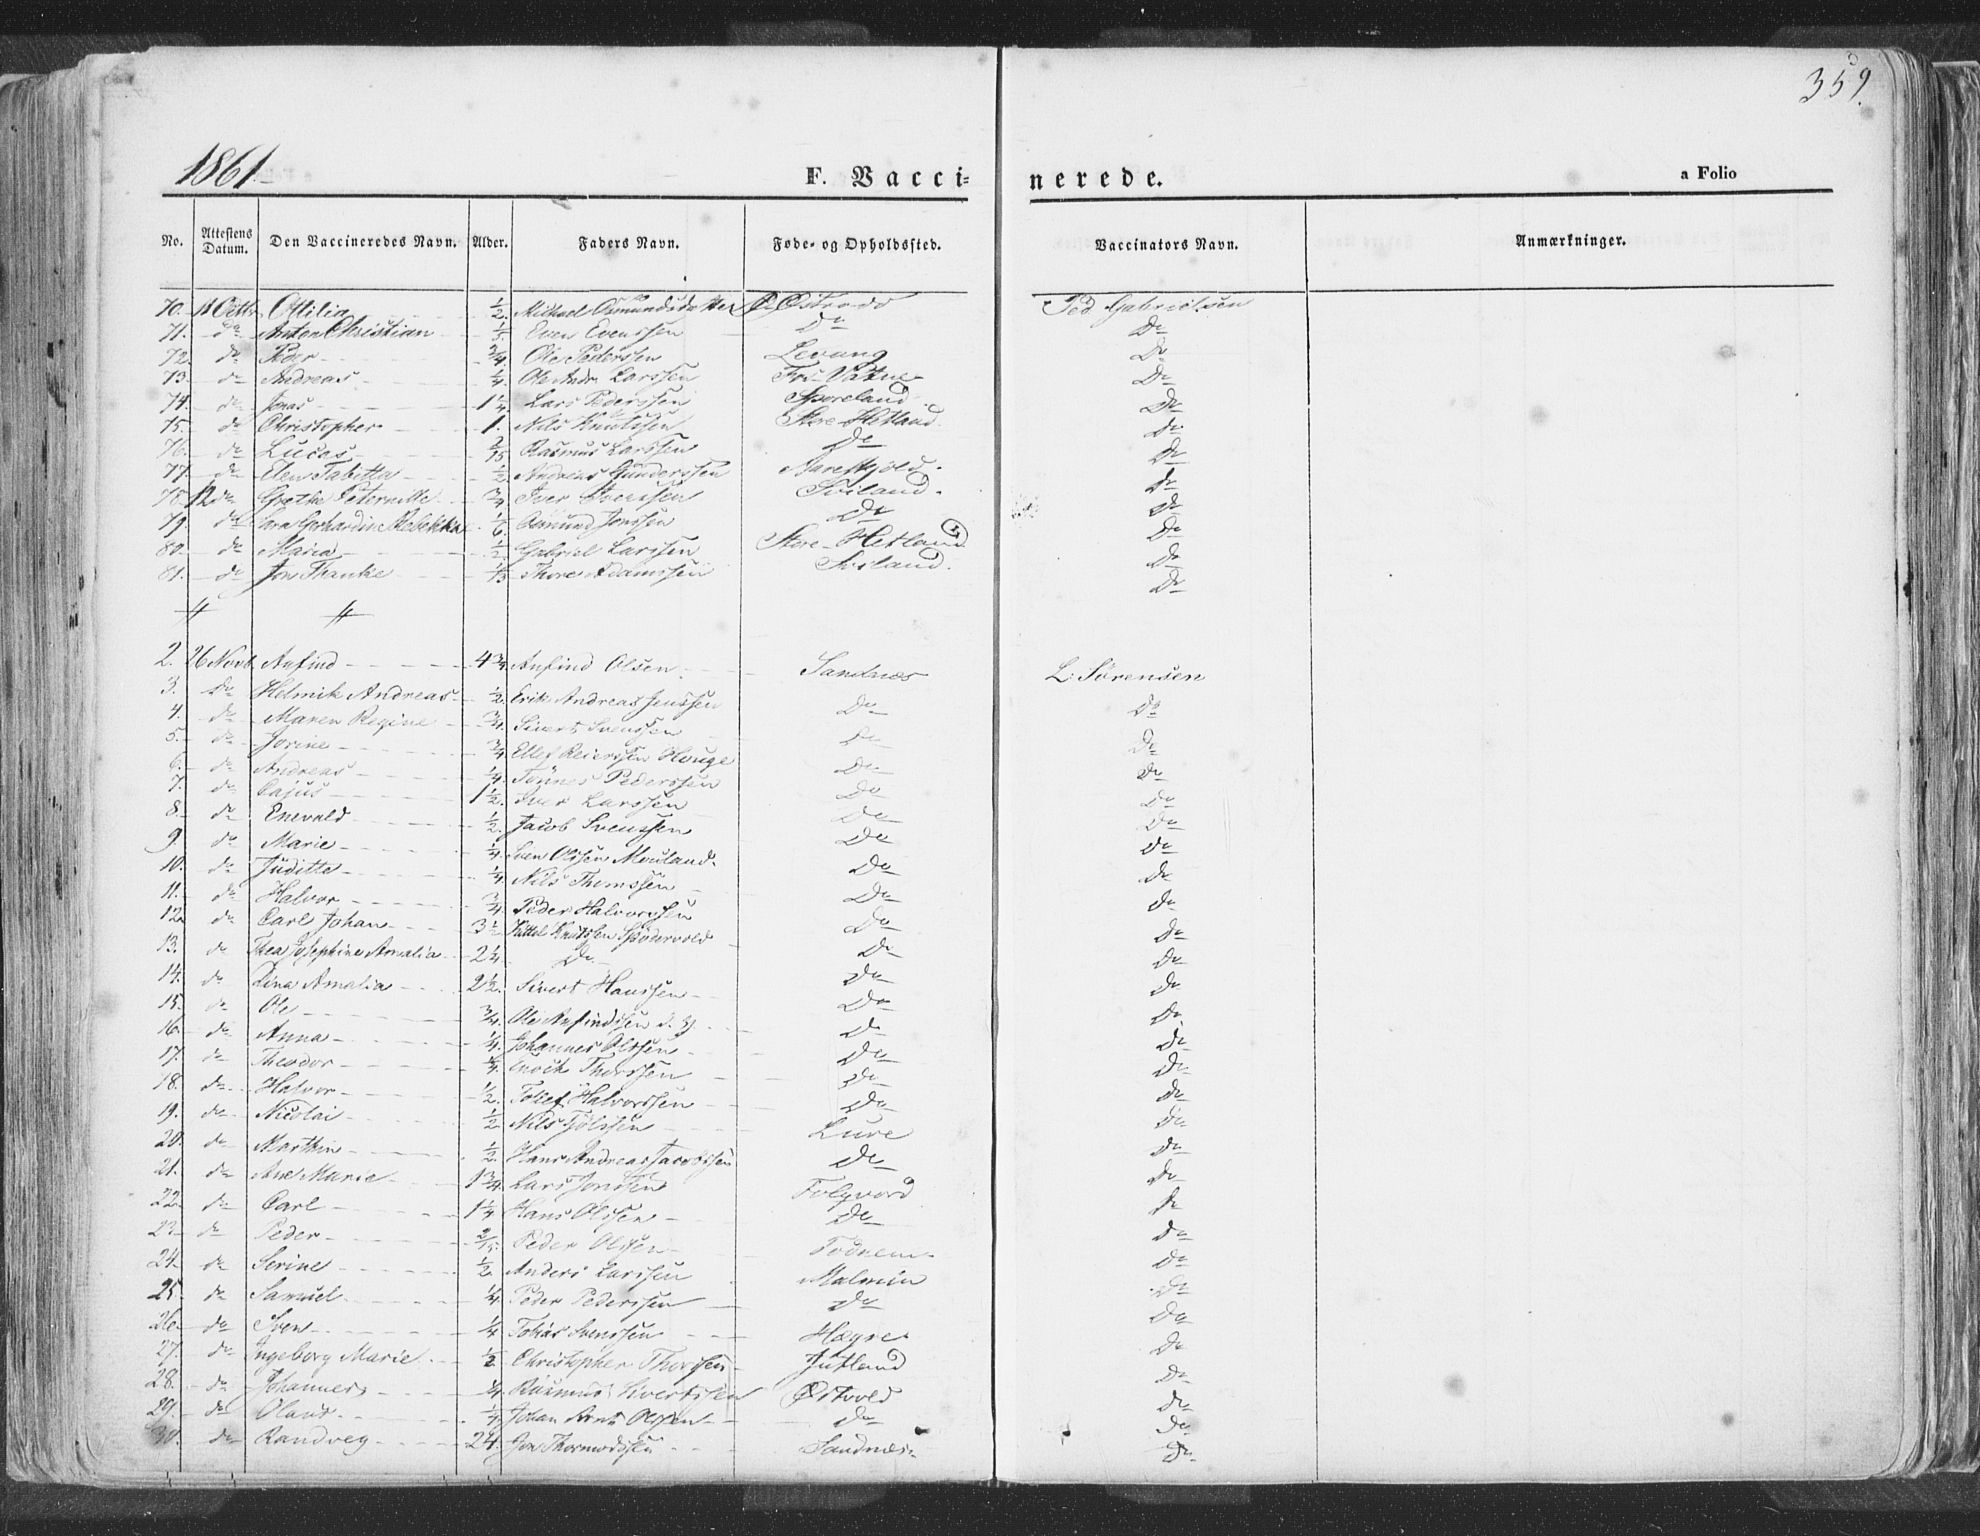 359.
1861.
F. Vacci= nerede. a Folio
No. Attestens Datum. Den Vaccineredes Navn. Alder. Faders Navn. Føde- og Opholdssted. Vaccinators Navn. Anmærkninger.
70. 11 Octbr Ottilia 1/2. Michael Osmundsdatter Ped Gabrielsen
71. do Anton Christian 1/5. Even Evenssen Do Do
72. do Peder 3/4. Ole Pederssen Levang Do
73. do Andreas 1/4. Ole Andr. Larssen Do
74. do Jonas 1 1/4. Lars Pederssen Skoreland Do
75. do Christopher 1. Nils Knutssen Store-Hetland. Do
76. do Lucas 2/15 Rasmus Larssen Do Do
77. do Elen Tabitta 1/2 Andreas Gunderssen Do
78. 12 do Grethe Peternille 3/4 Iver Iverssen Sviland. Do
79. do Sara Gerhardine Rebekka 1/6. Osmund Jonssen Do Do
80. do Maria 1/2. Gabriel Larssen Store-Hetland Do
81. do Jon Thanke 1/15. Thore Adamssen Sviland. Do
" "
2. 26 Novb. Anfind 4 3/4. Anfind Olsen Sandnæs L. Sørensen
3. Do Helmik Andreas 1/2. Erik Andreas Jenssen Do Do
4. do Maren Regine 3/4. Sivert Svenssen Do Do
5. do Jorine 3/4 Ellef Reierssen Houge Do Do
6. do Andreas 1/4. Tønnes Pederssen Do Do
7. do Cajus 1 1/2. Iver Larssen Do Do
8. do Enevald 1/2. Jacob Svenssen Do Do
9. do Marie 1/4. Sven Olssen Mouland. Do Do
10. do Juditte 1/4. Nils Thomssen Do Do
11. do Halvor 3/4 Peder Halvorssen Do Do
12. do Carl Johan 3 1/2 Kittel Knutssen Do Do
13. do Thea Josephine Amalia 2 1/4. Do Do Do
14. do Lina Amalia 2 1/2. Sivert Hanssen Do Do
15. do Ole 3/4. Ole Anfindssen d. y. Do Do
16. do Anna 1/4. Johannes Olssen Do Do
17. do Theodor 1/4. Enock Thorssen Do Do
18. do Halvor 1/2. Tollef Halvorssen Do Do
19. do Nicolai 1/2 Nils Lure Do
20. do Marthin 1/2. Hans Andreas Jacobssen Do Do
21. do Ane Marie 1 3/4. Lars Jonssen Folgvord Do
22. do Carl 1 1/4 Hans Olssen Do Do
23. do Peder 2/15. Peder Olssen Todnem Do
24. do Serine 1/2. Anders Larssen Malmin Do
25. do Samuel 1/4. Peder Pederssen Do Do
26. do Sven 1/4 Tobias Svenssen Høgre Do
27. do Ingeborg Marie 1/2 Christopher Thorssen Jutland Do
28. do Johannes 1/4. Rasmus Sivertssen Østvold Do
29. do Olaus 1/4. Johan Arnt Olssen Do Do
30. do Randveg 24. Jon Thormodssen Sandnæs Do